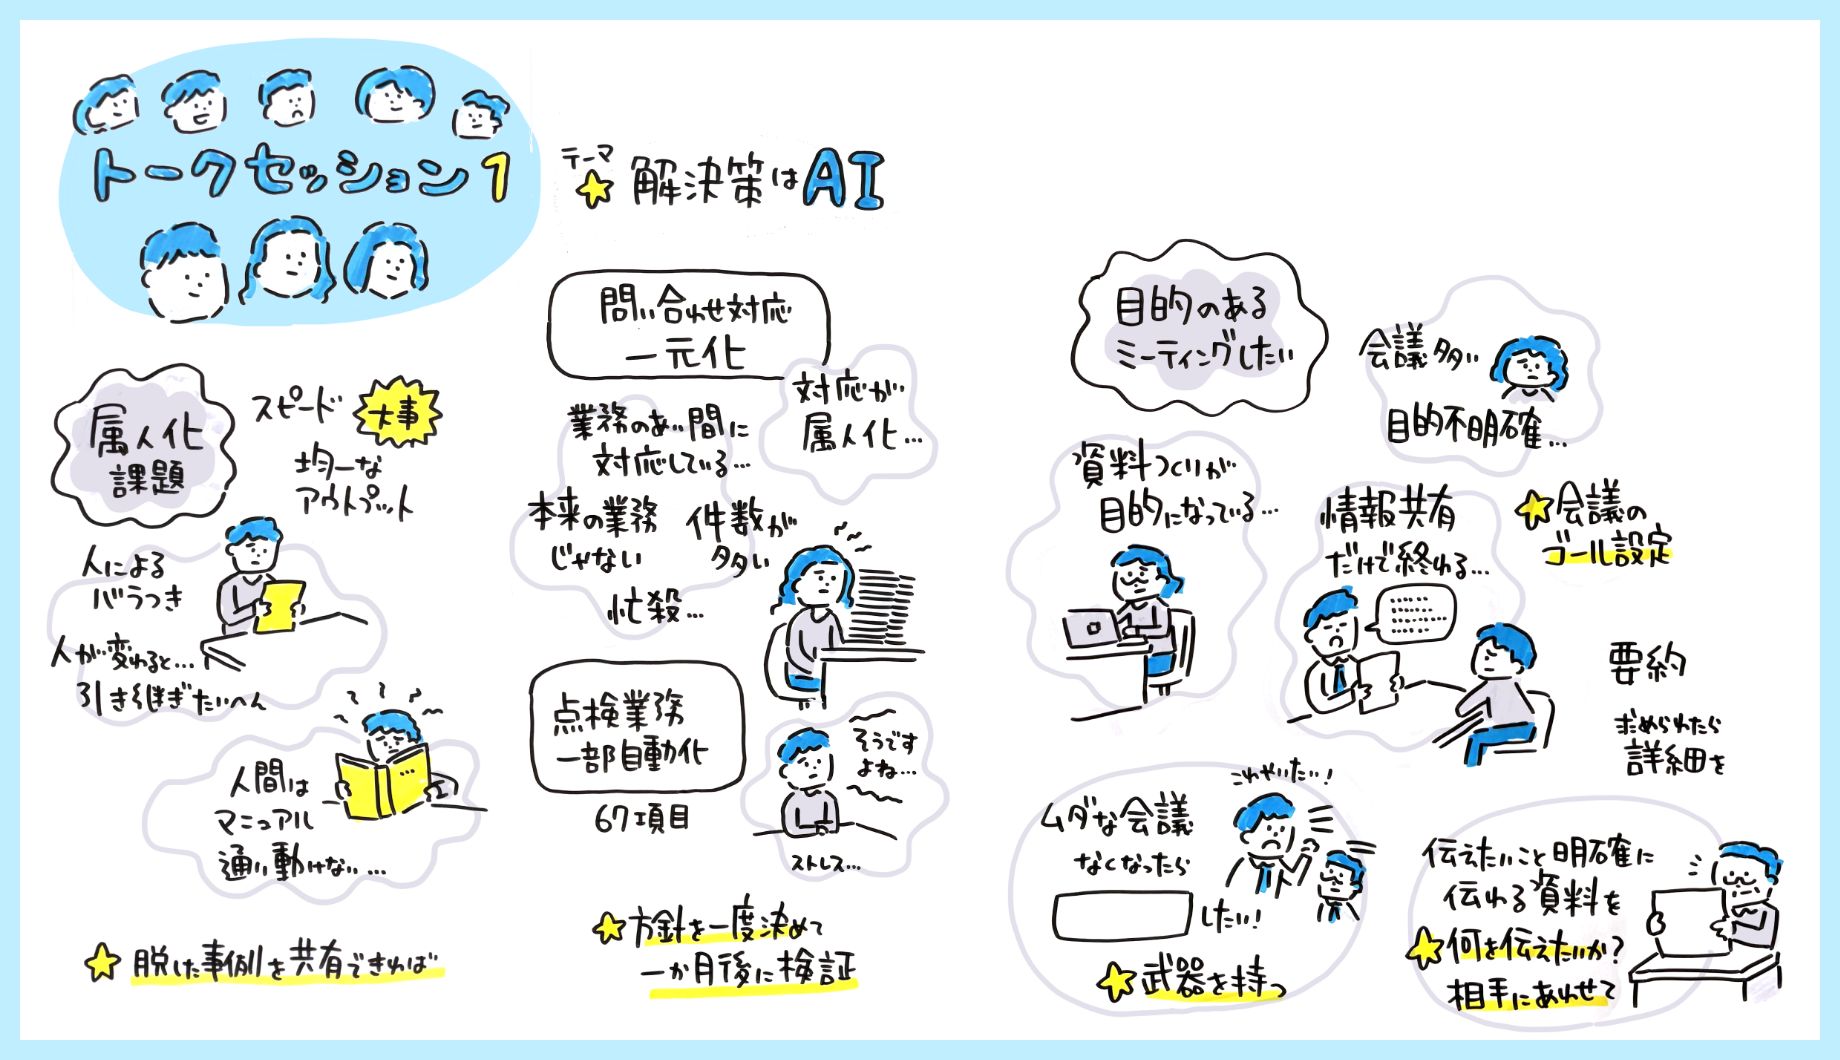 トークセッション1
テーマ
解決策はAI
属人化
課題
スピード
大事
均一な
アウトプット
人による
バラつき
人が変わると…
引き継ぎたいへん
人間は
マニュアル
通り動けない…
脱した事例を共有できれば
問い合わせ対応
一元化
対応が
属人化…
業務のあい間に
対応している…
本来の業務
じゃない
件数が
多い
忙殺…
点検業務
一部自動化
67項目
そうです
よね…
ストレス…
方針を一度決めて
一か月後に検証
目的のある
ミーティングしたい
会議多い
目的不明確…
資料つくりが
目的になっている…
情報共有
だけで終わる…
会議の
ゴール設定
要約
求められたら
詳細を
ムダな会議
なくなったら
したい!
これやりたい!
武器を持つ
伝えたいこと明確に
伝わる資料を
何を伝えたいか?
相手にあわせて